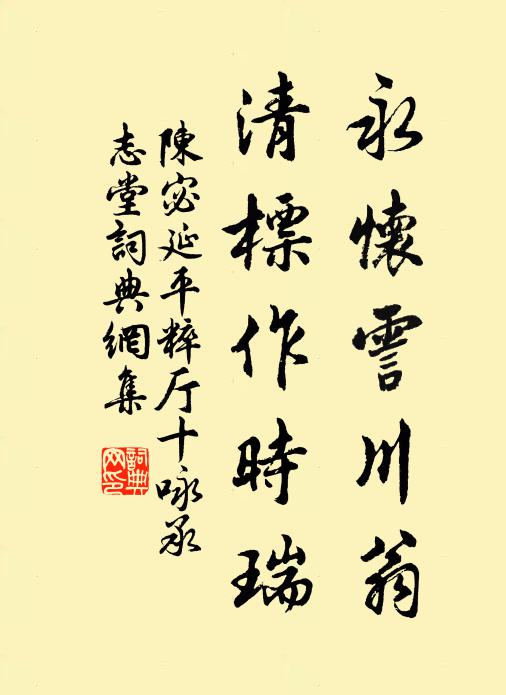 永懷霅川翁
清標作時瑞
陳宓延平粹厅十咏承
志堂詞典網集
詞典
网印